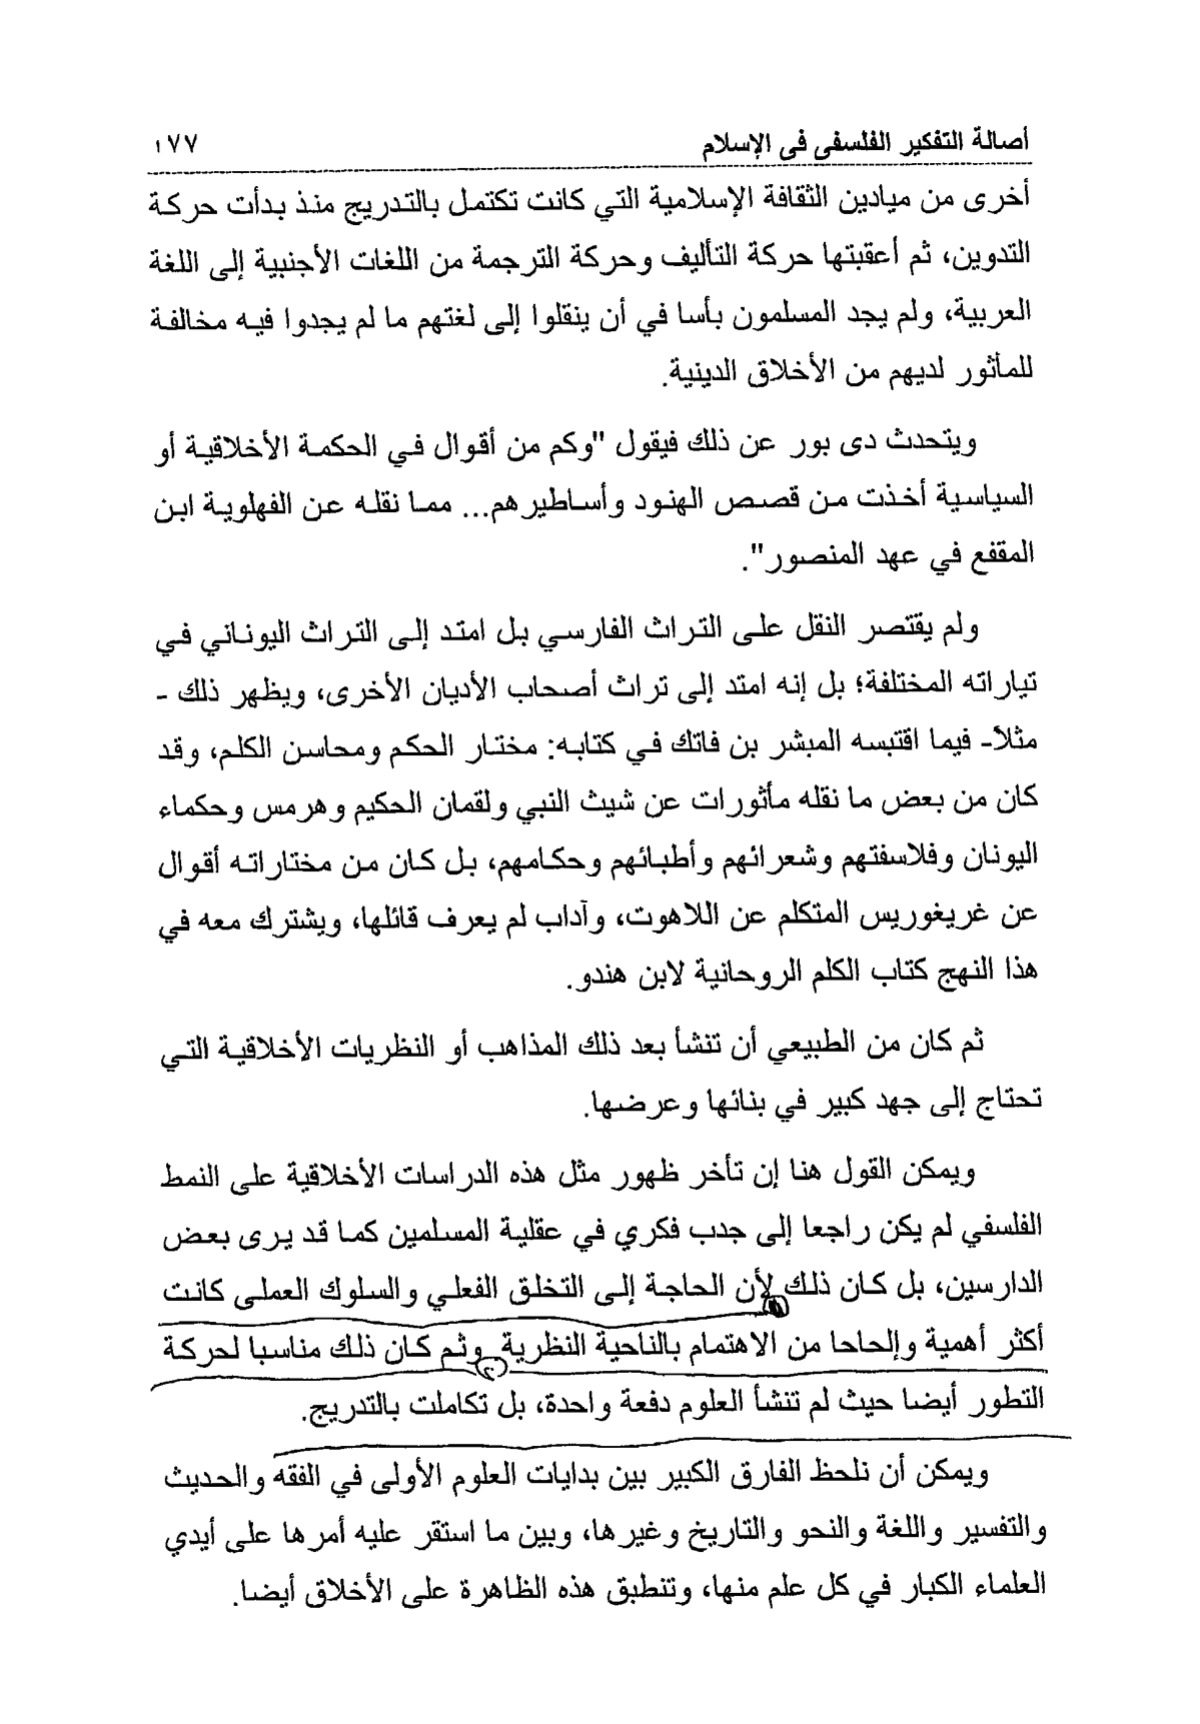 أصالة التفكير الفلسفى فى الإسلام ١٧٧
أخرى من ميادين الثقافة الإسلامية التي كانت تكتمل بالتدريج منذ بدأت حركة
التدوين، ثم أعقبتها حركة التأليف وحركة الترجمة من اللغات الأجنبية إلى اللغة
العربية، ولم يجد المسلمون بأسا في أن ينقلوا إلى لغتهم ما لم يجدوا فيه مخالفة
للمأثور لديهم من الأخلاق الدينية.
ويتحدث دى بور عن ذلك فيقول "وكم من أقوال في الحكمة الأخلاقية أو
السياسية أخذت من قصص الهنود وأساطيرهم... مما نقله عن الفهلوية ابن
المقفع في عهد المنصور".
ولم يقتصر النقل على التراث الفارسي بل امتد إلى التراث اليوناني في
تياراته المختلفة؛ بل إنه امتد إلى تراث أصحاب الأديان الأخرى، ويظهر ذلك -
مثلاً- فيما اقتبسه المبشر بن فاتك في كتابه: مختار الحكم ومحاسن الكلم، وقد
كان من بعض ما نقله مأثورات عن شيث النبي ولقمان الحكيم وهرمس وحكماء
اليونان وفلاسفتهم وشعرائهم وأطبائهم وحكامهم، بل كان من مختاراته أقوال
عن غريغوريس المتكلم عن اللاهوت، وآداب لم يعرف قائلها، ويشترك معه في
هذا النهج كتاب الكلم الروحانية لابن هندو.
ثم كان من الطبيعي أن تنشأ بعد ذلك المذاهب أو النظريات الأخلاقية التي
تحتاج إلى جهد كبير في بنائها وعرضها.
ويمكن القول هنا إن تأخر ظهور مثل هذه الدراسات الأخلاقية على النمط
الفلسفي لم يكن راجعا إلى جدب فكري في عقلية المسلمين كما قد يرى بعض
الدارسين، بل كان ذلك لأن الحاجة إلى التخلق الفعلي والسلوك العملى كانت
أكثر أهمية وإلحاحا من الاهتمام بالناحية النظرية وثم كان ذلك مناسبا لحركة
التطور أيضا حيث لم تنشأ العلوم دفعة واحدة، بل تكاملت بالتدريج.
ويمكن أن نلحظ الفارق الكبير بين بدايات العلوم الأولى في الفقه والحديث
والتفسير واللغة والنحو والتاريخ وغيرها، وبين ما استقر عليه أمرها على أيدي
العلماء الكبار في كل علم منها، وتنطبق هذه الظاهرة على الأخلاق أيضا.